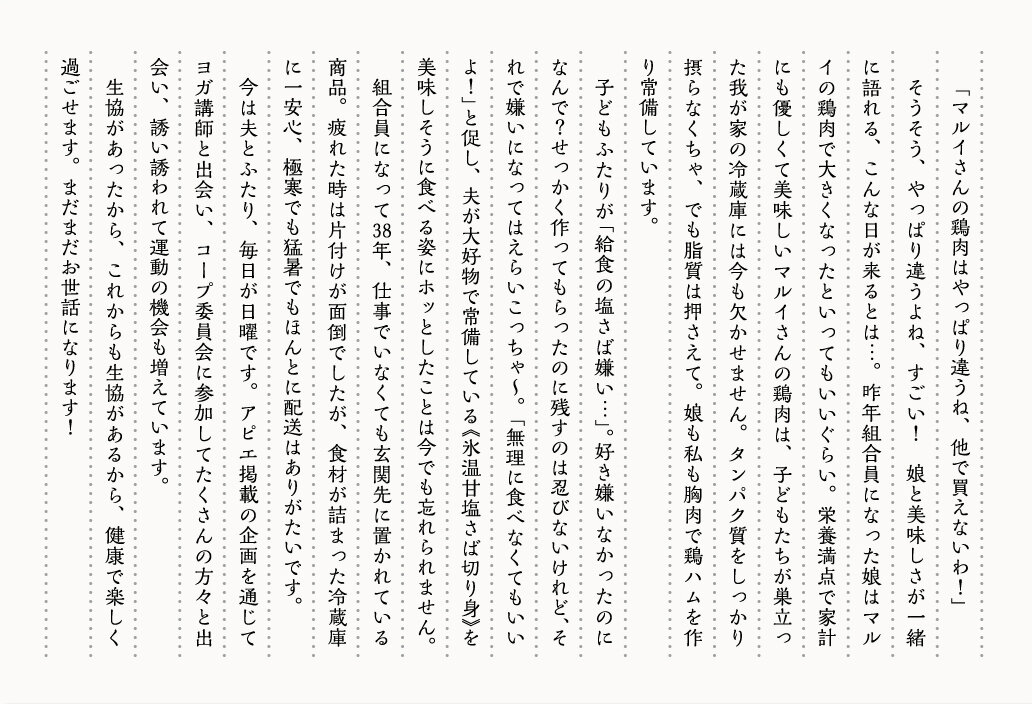 「マルイさんの鶏肉はやっぱり違うね、他で買えないわ！」
そうそう、やっぱり違うよね、すごい！　娘と美味しさが一緒
に語れる、こんな日が来るとは…。昨年組合員になった娘はマル
イの鶏肉で大きくなったといってもいいぐらい。栄養満点で家計
にも優しくて美味しいマルイさんの鶏肉は、子どもたちが巣立っ
た我が家の冷蔵庫には今も欠かせません。タンパク質をしっかり
摂らなくちゃ、でも脂質は押さえて。娘も私も胸肉で鶏ハムを作
り常備しています。
子どもふたりが「給食の塩さば嫌い…」。好き嫌いなかったのに
なんで？せっかく作ってもらったのに残すのは忍びないけれど、そ
れで嫌いになってはえらいこっちゃ～。「無理に食べなくてもいい
よ！」と促し、夫が大好物で常備している《氷温甘塩さば切り身》を
美味しそうに食べる姿にホッとしたことは今でも忘れられません。
組合員になって38年、仕事でいなくても玄関先に置かれている
商品。疲れた時は片付けが面倒でしたが、食材が詰まった冷蔵庫
に一安心、極寒でも猛暑でもほんとに配送はありがたいです。
今は夫とふたり、毎日が日曜です。アピエ掲載の企画を通じて
ヨガ講師と出会い、コープ委員会に参加してたくさんの方々と出
会い、誘い誘われて運動の機会も増えています。
生協があったから、これからも生協があるから、健康で楽しく
過ごせます。まだまだお世話になります！